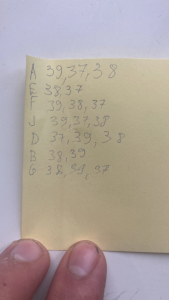 A 39,37,38
E 38,37
F 39,38,37
J 39,37,38
D 37,39,38
B 38,39
G 38,39,37